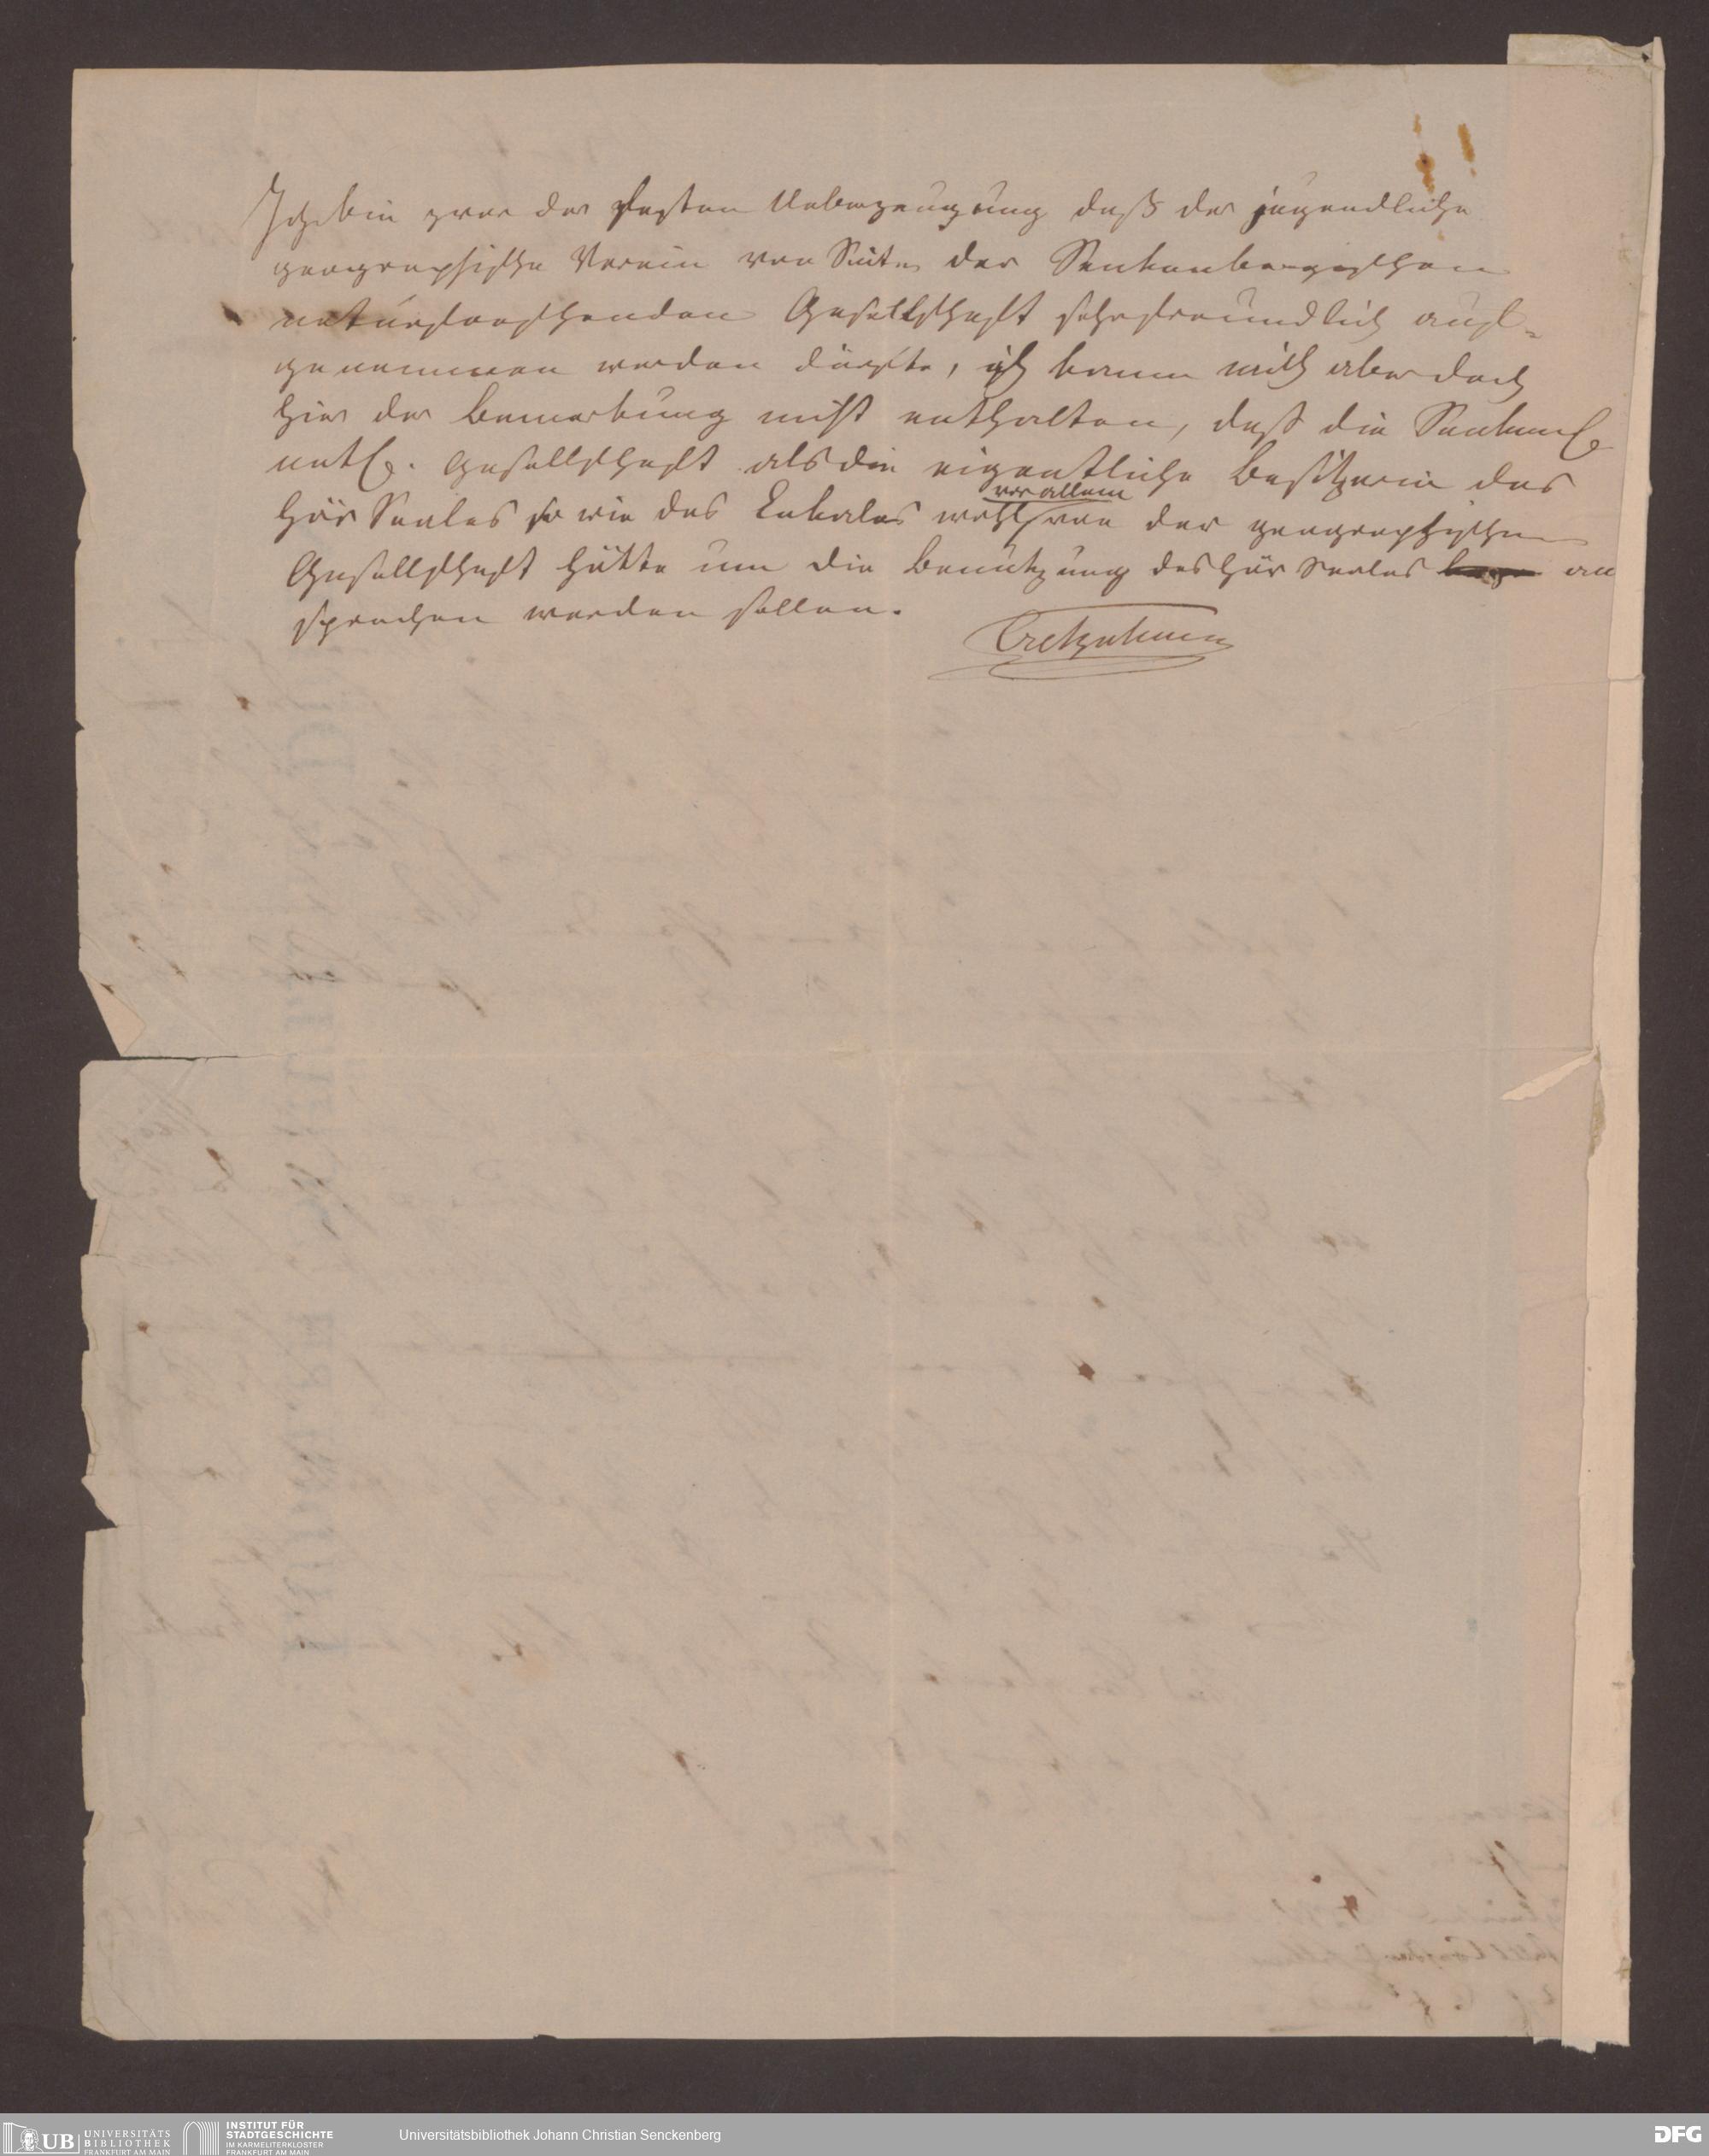 Ich bin zwar der festen Ueberzeugung daß der jugendliche
geographische Verein von Seiten der Senkenbergischen
naturforschenden Gesellschaft sehr freundlich auf-
genommen werden dürfte, ich kann mich aber doch
hier der Bemerkung nicht enthalten, daß die Senkenb
natf. Gesellschaft als die eigentliche Besitzerin des
Hör Saales so wie des Lokales wohl vor allem von der geographischen
Gesellschaft hätte um die Benutzung des Hör Saales an
sprochen werden sollen.
Cretzschmar
UB UNIVERSITÄTS
BIBLIOTHEK
FRANKFURT AM MAIN
INSTITUT FÜR
STADTGESCHICHTE
IM KARMELITERKLOSTER
FRANKFURT AM MAIN
Universitätsbibliothek Johann Christian Senckenberg
DFG